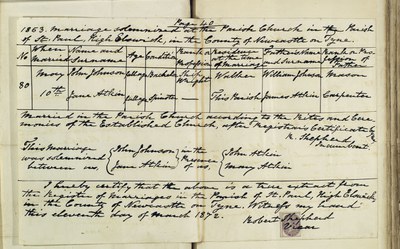 Page 40
1863. Marriage solemnized at the Parish Church in the Parish
of St. Paul, High Elswick, in the County of Newcastle on Tyne.
No When Married Name and Surname Age Condition Rank or Profession Residence at the time of marriage Father's Name and Surname Rank or Profession of Father
80 May 10th John Johnson full age Bachelor Wright Walker William Johnson Mason
Jane Atkin full age Spinster — This Parish James Atkin Carpenter
Married in the Parish Church according to the Rites and Cere-
monies of the Established Church, after Registrar's Certificate by
R. Shepherd,
Incumbent
This marriage was solemnized between us, John Johnson Jane Atkin in the Presence of us, John Atkin Mary Atkin
I hereby certify that the above is a true extract from
the Register of Marriages in the Parish of St. Paul, High Elswick,
in the County of Newcastle on Tyne. Witness my hand
this eleventh day of March 1872.
Robert Shepherd
Vicar